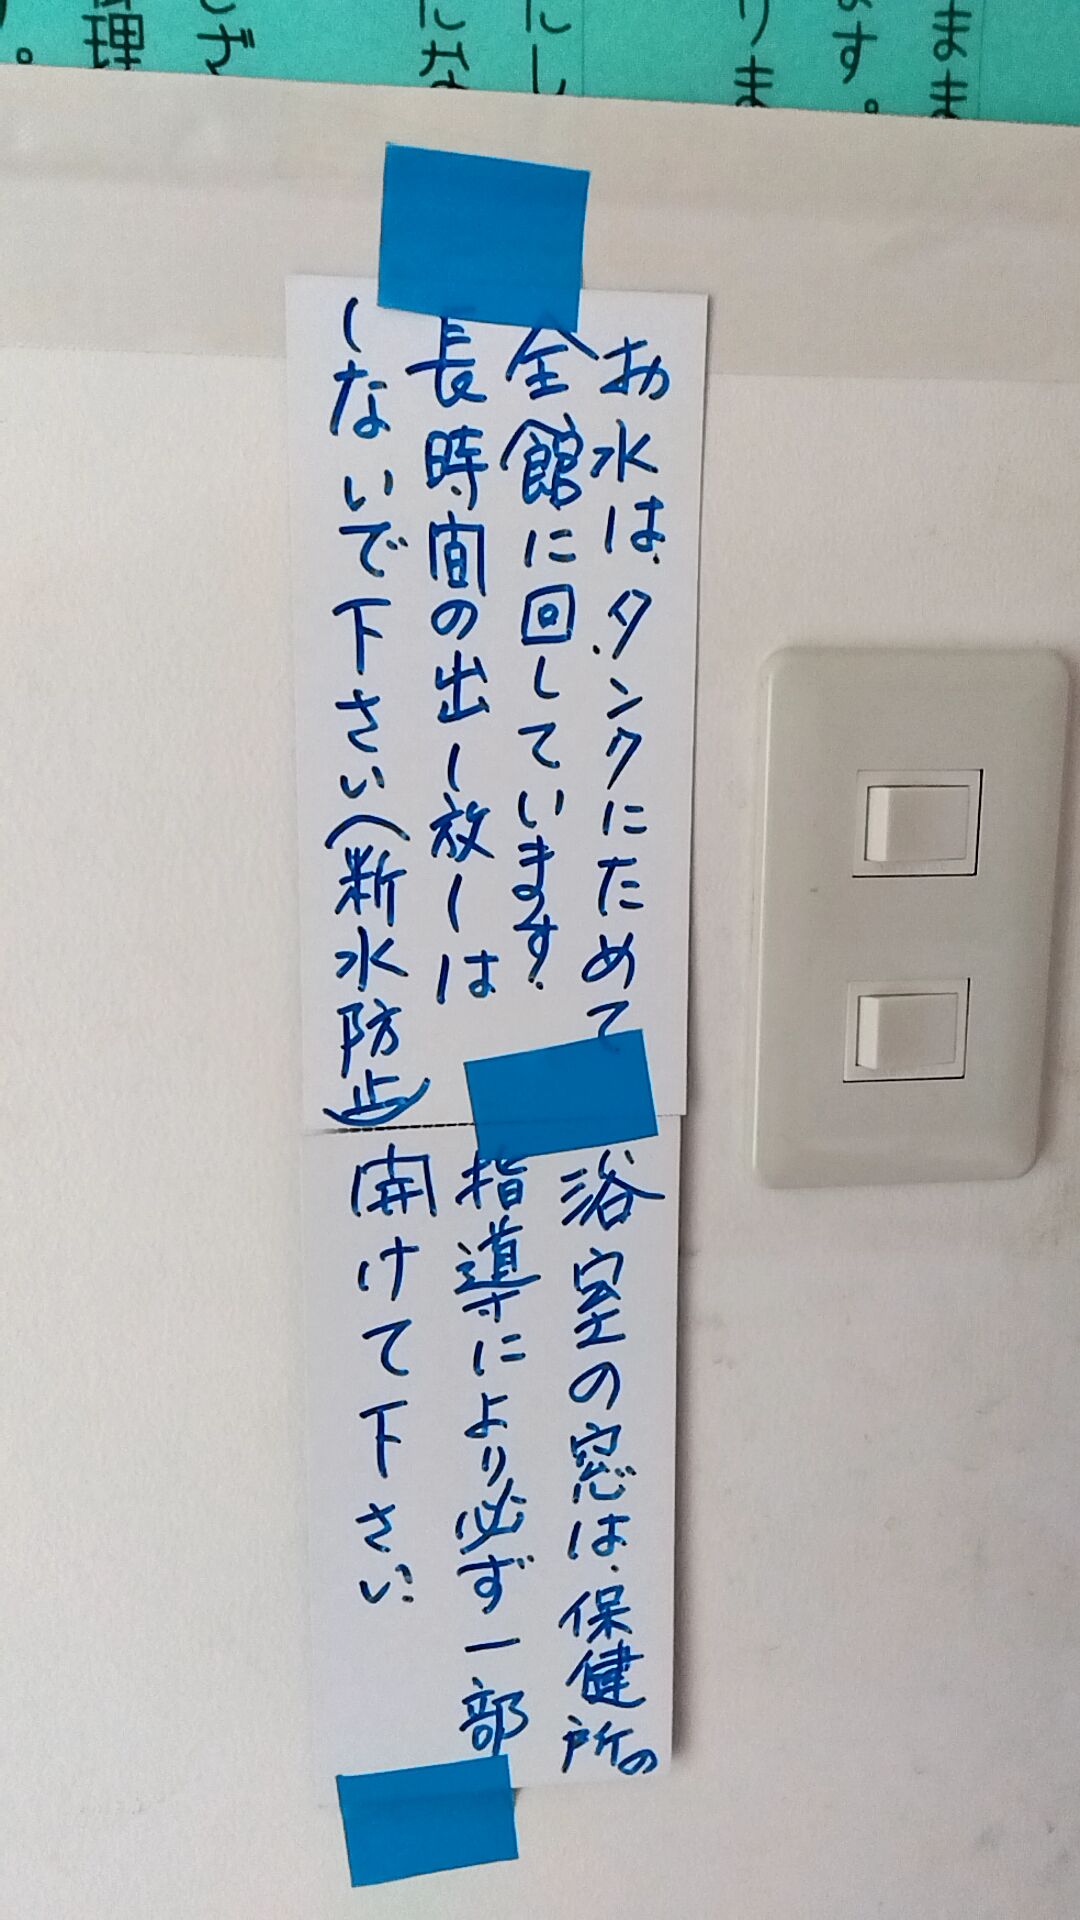 まま
ます。
りま
にし
にな
ござ
理
。
お水は、タンクにためて
全館に回しています。
長時間の出し放しは
しないで下さい(断水防止)
浴室の窓は、保健所の
指導により必ず一部
開けて下さい